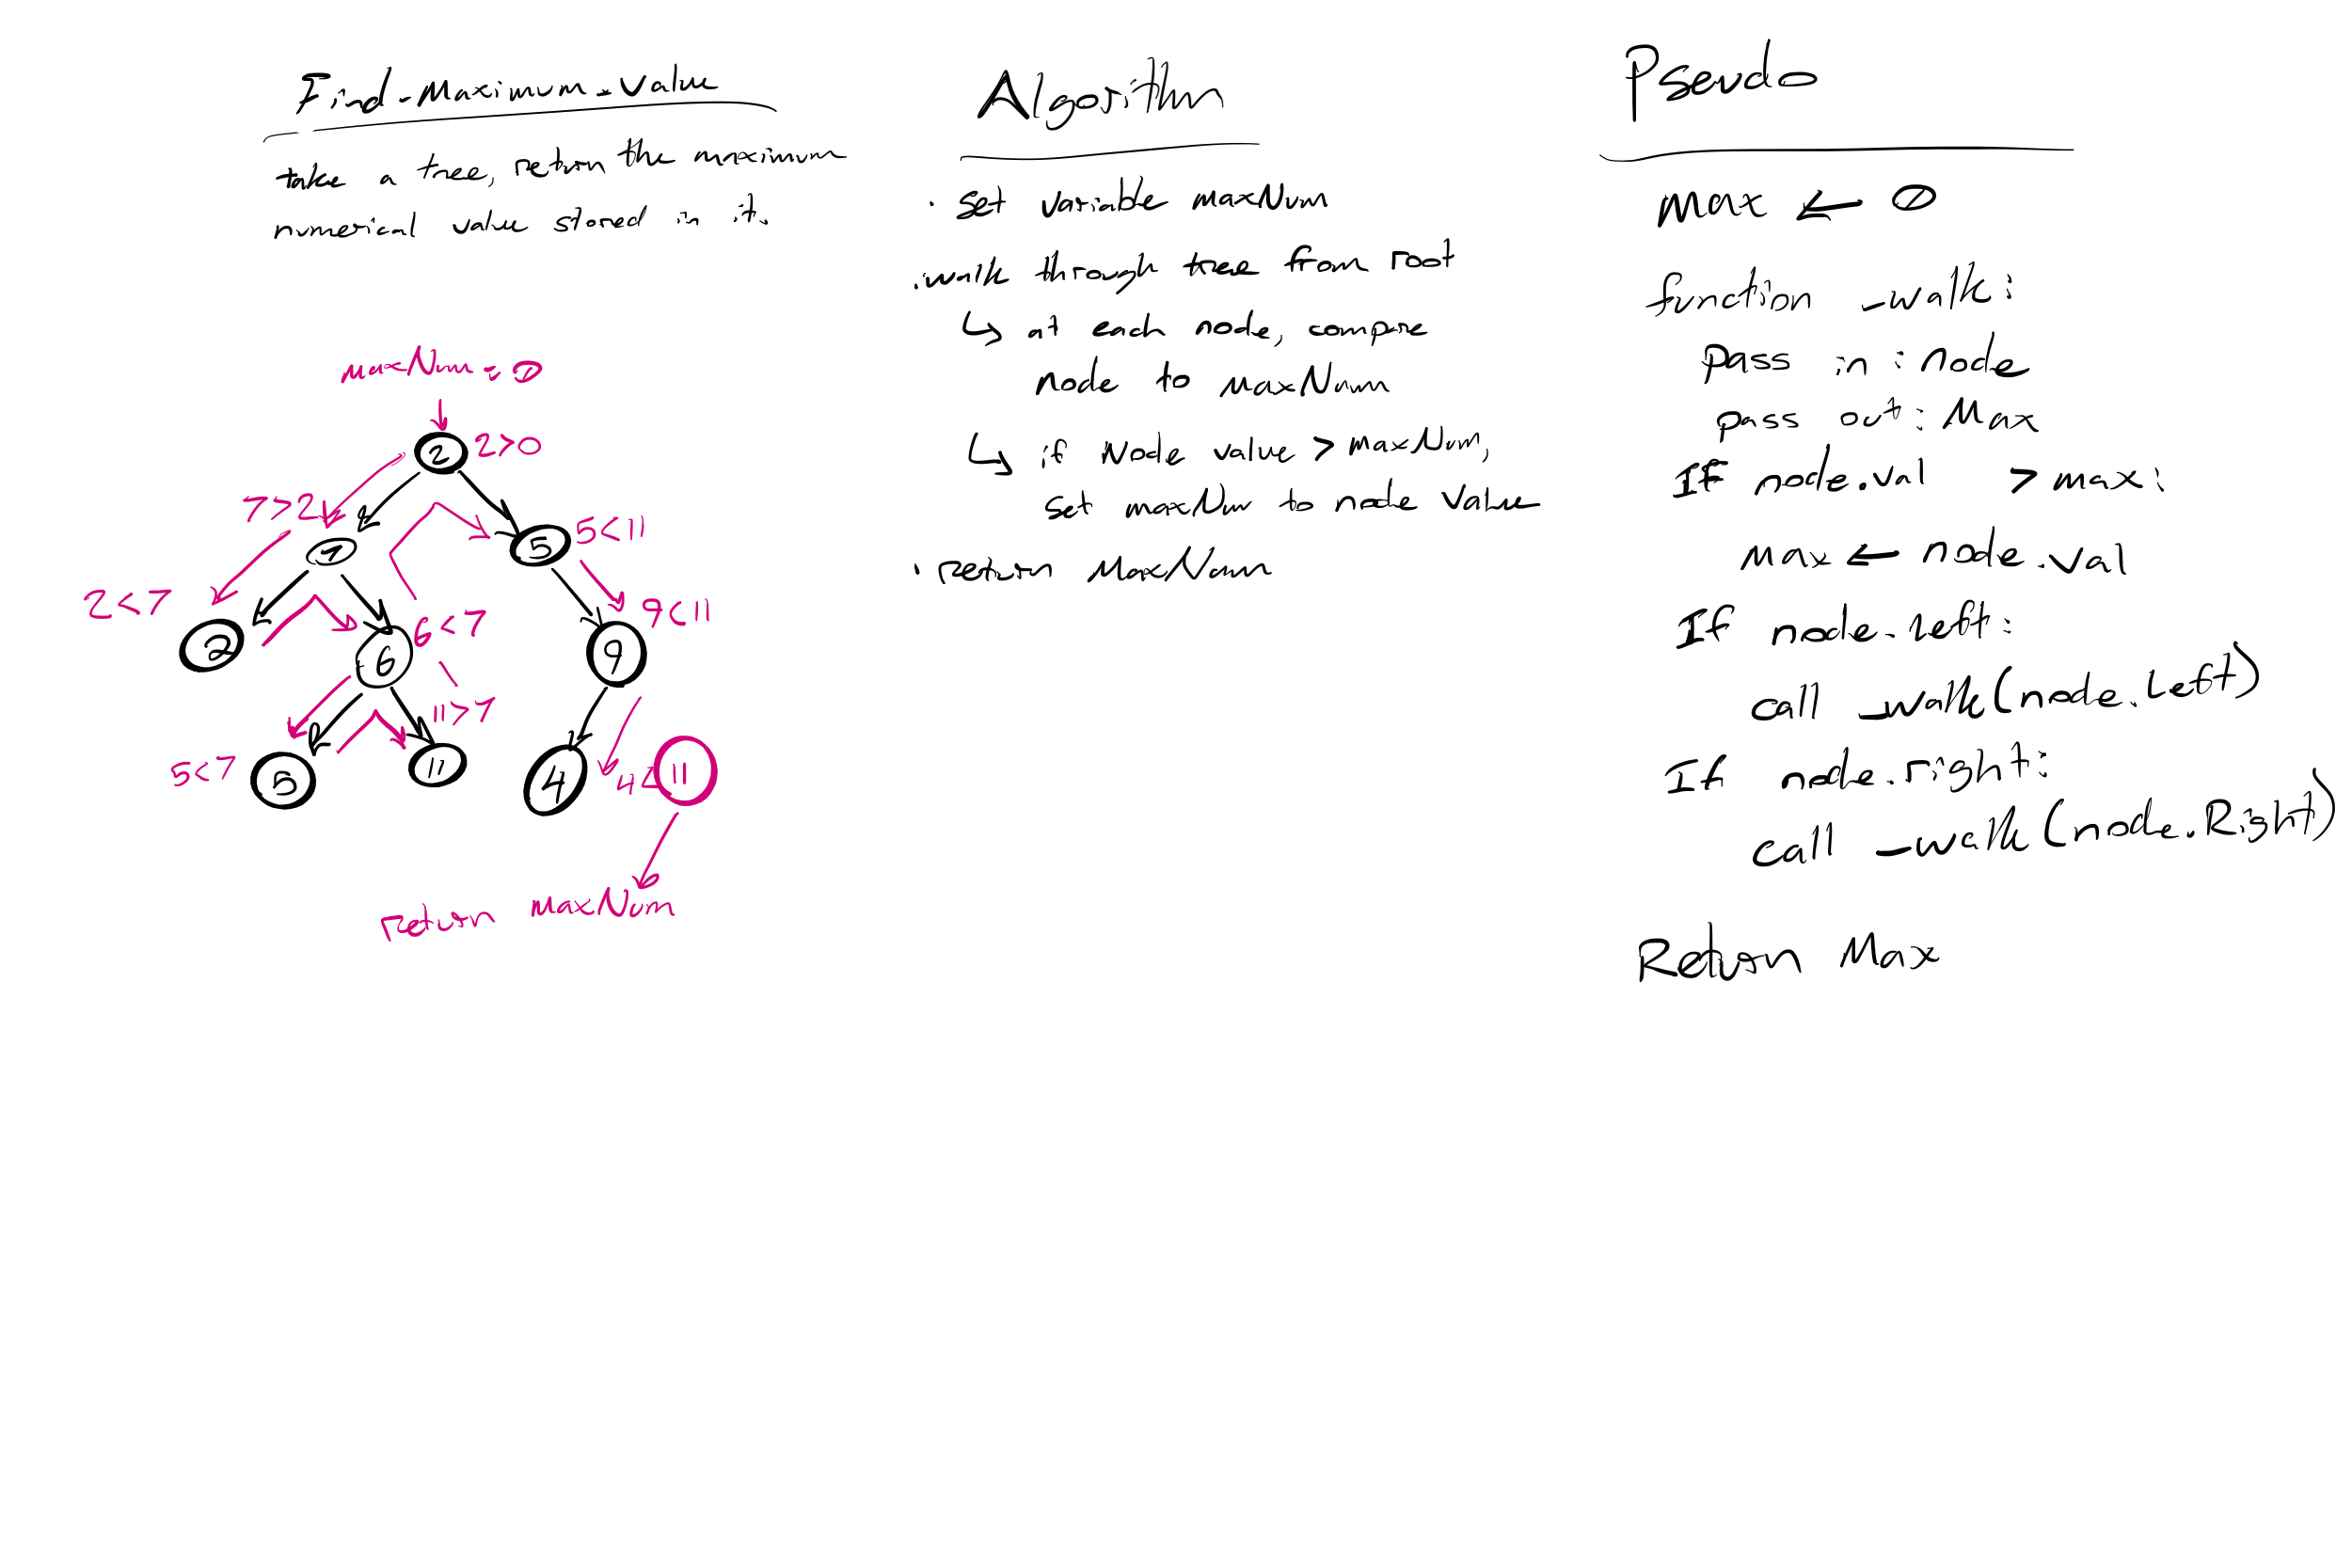 Find-Maximum-Value
take a tree, return the maximum
numerical value stored in it.
maxNum = 0
2
2>0
7>2
7
5
5<11
2<7
2
6
6<7
9
9<11
11>7
5<7
5
11
4
4<
11
return maxNum
Algorithm
· Set variable maxNum
· walk through tree from root
↳ at each node, compare
node to maxNum
↳ if Node value > maxNum,
set maxNum to node value
· return MaxNum
Pseudo
max ← 0
function _walk:
pass in : node
pass out : Max
If node.val > max:
max ← node.val
If node.left:
call _walk(node.Left)
If node.right:
call _walk(node.Right)
Return Max